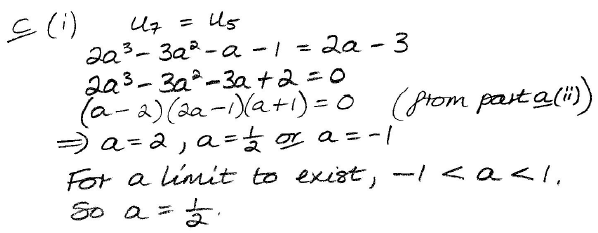 c (i) u₇ = u₅
2a³ - 3a² - a - 1 = 2a - 3
2a³ - 3a² - 3a + 2 = 0
(a - 2)(2a - 1)(a + 1) = 0 (from part a(ii))
⇒ a = 2, a = ½ or a = -1
For a limit to exist, -1 < a < 1.
So a = ½.